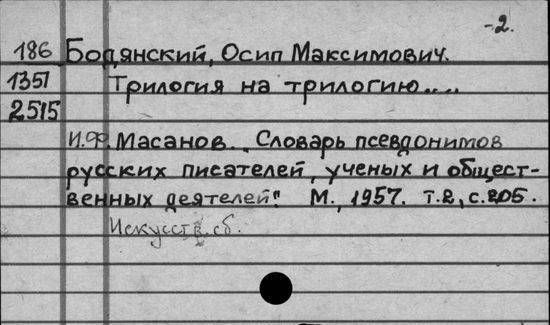 -2.
186 Бодянский, Осип Максимович.
1351 Трилогия на трилогию....
2515
И.Ф. Масанов. „Словарь псевдонимов
русских писателей, ученых и общест-
венных деятелей". М., 1957. т.2, с.205.
Искусств. сб.